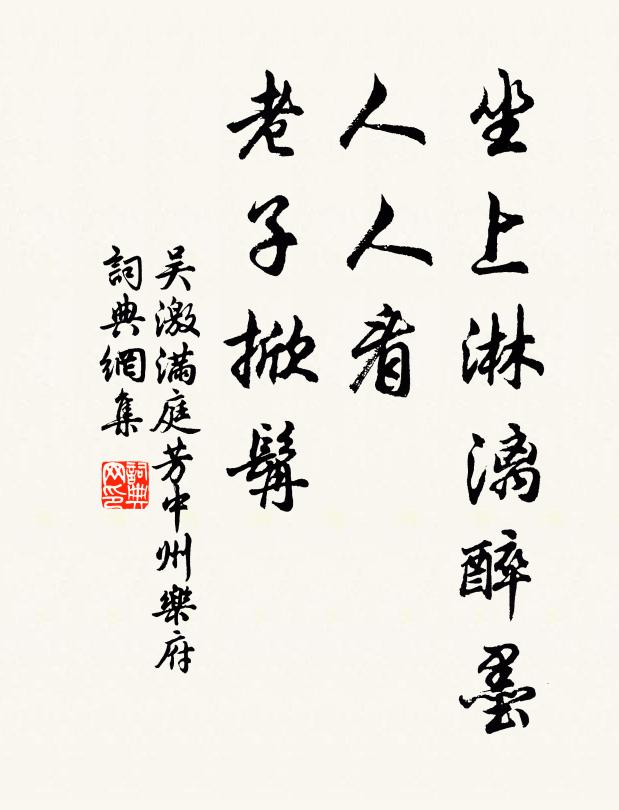 坐上淋漓醉墨
人人看
老子掀髯
吴激滿庭芳中州樂府
詞典網集
詞典网印